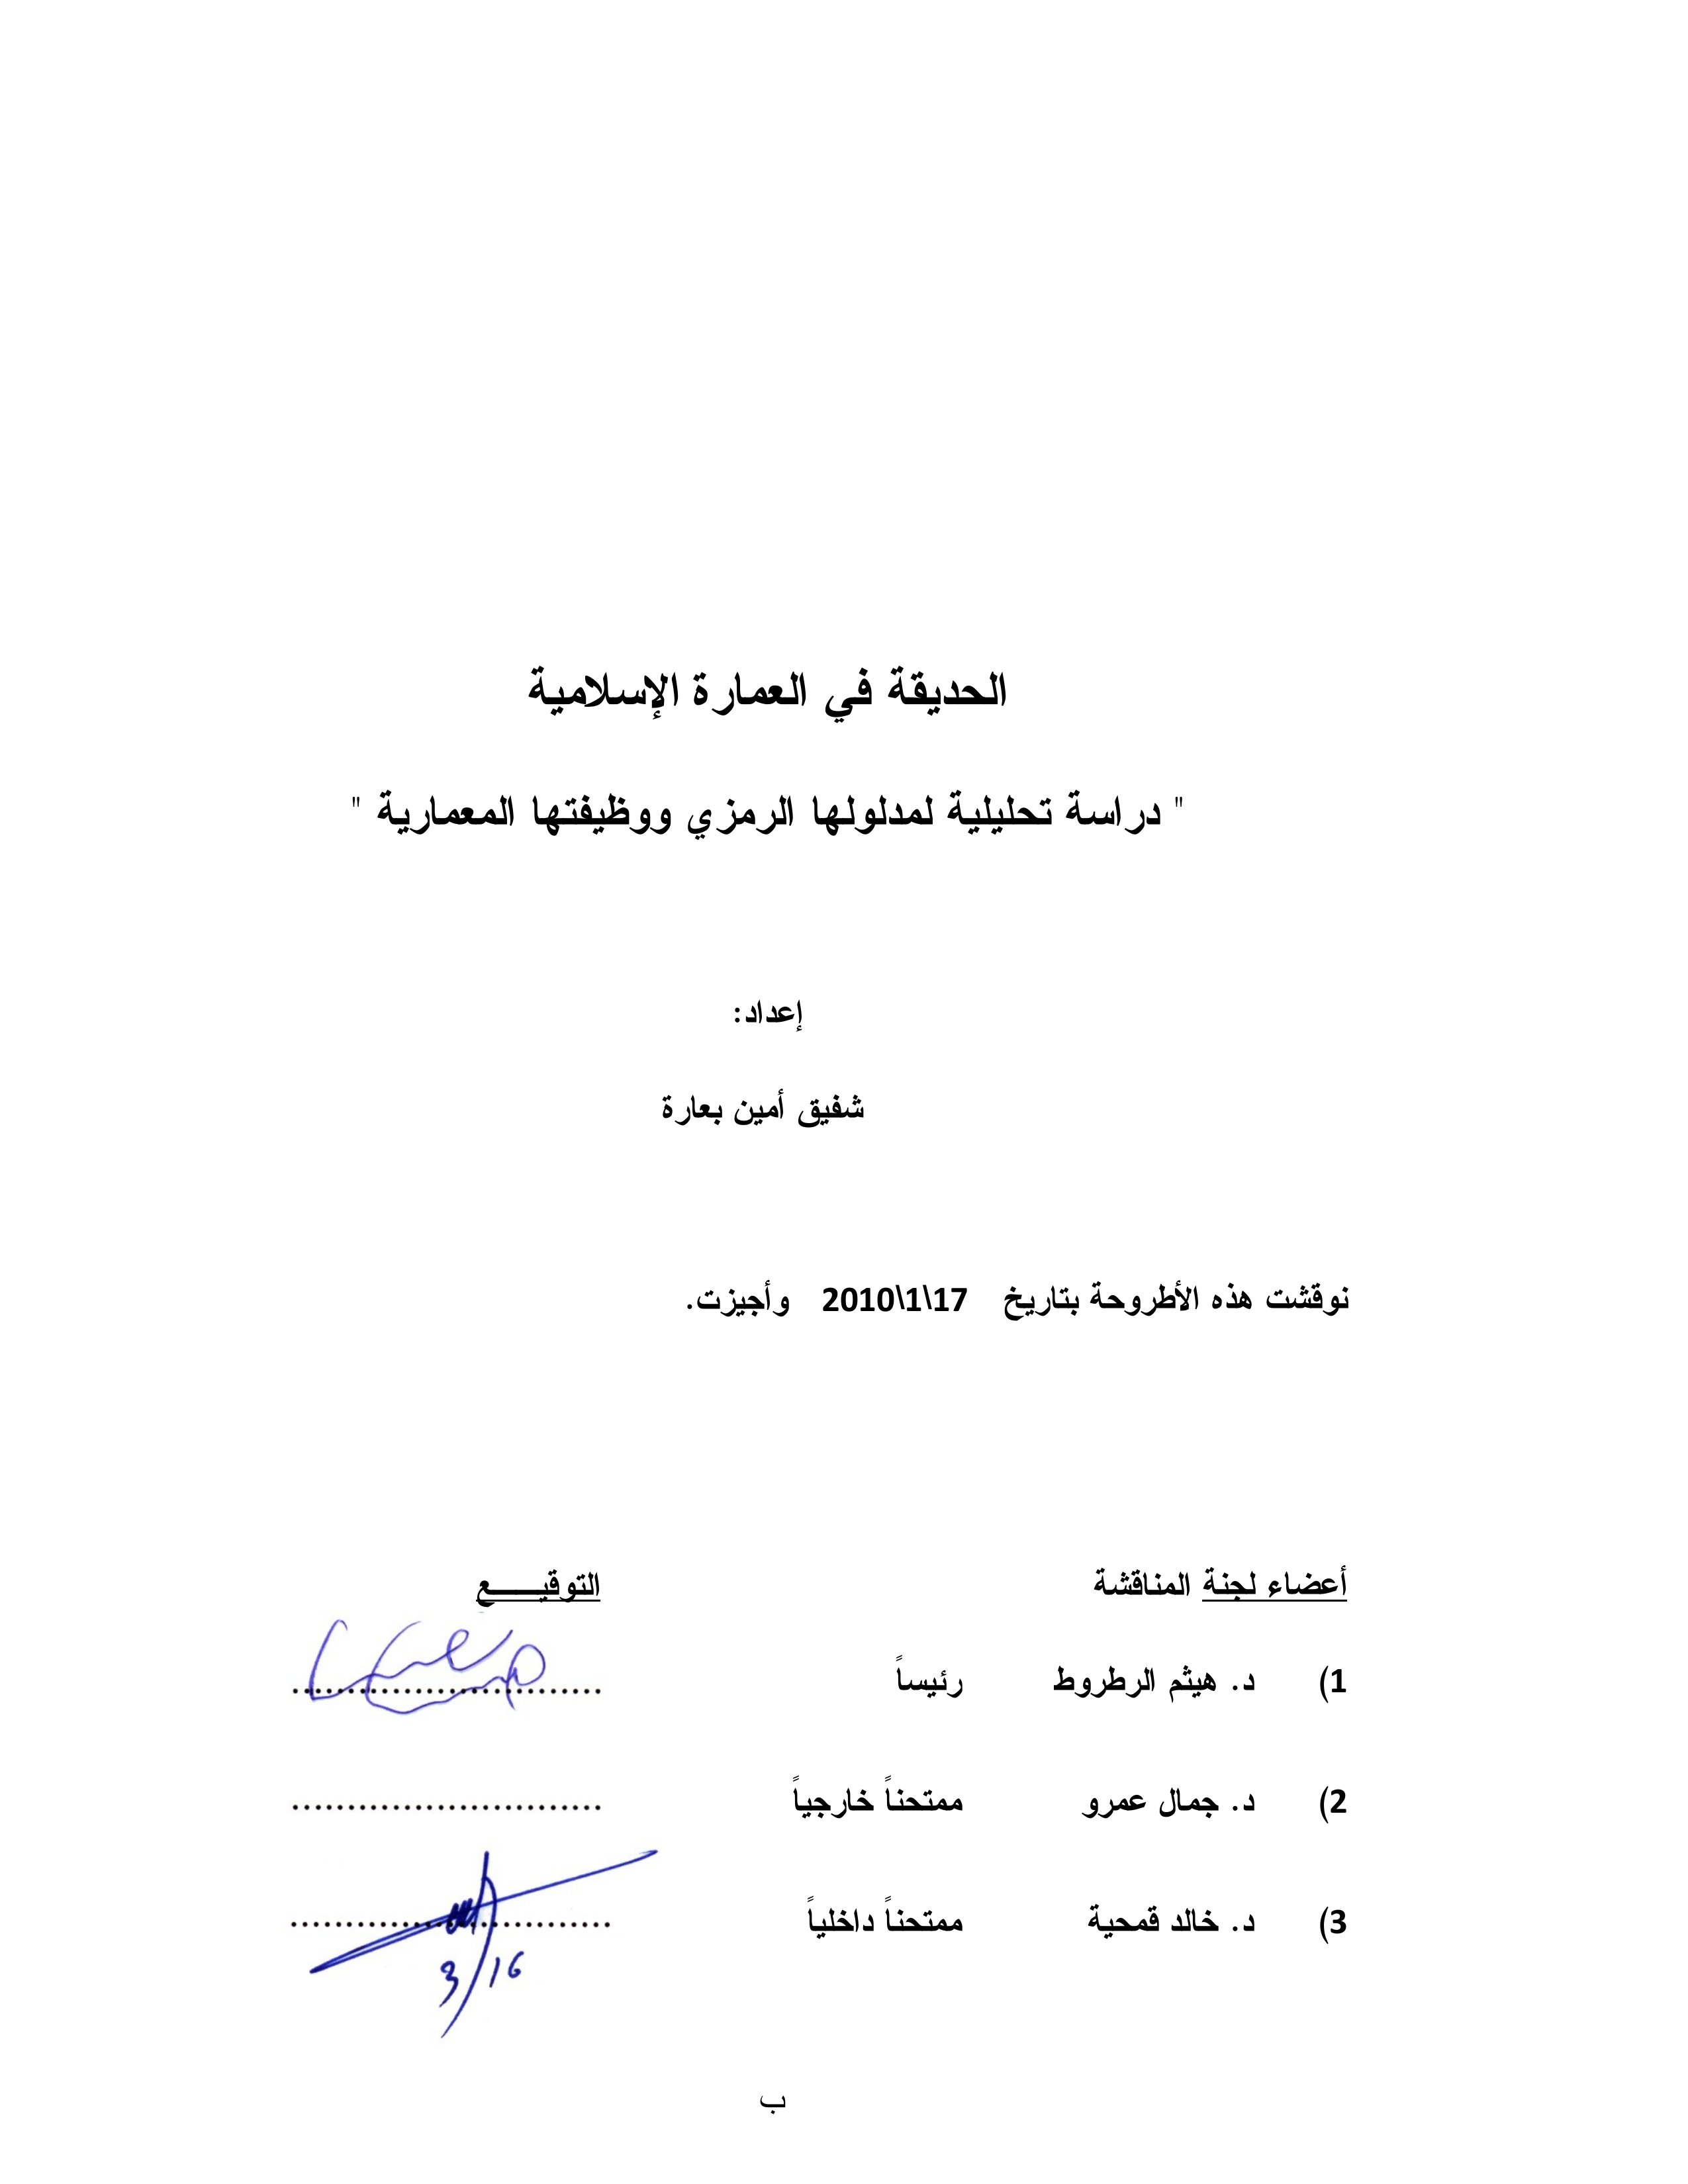 الحديقة في العمارة الإسلامية
" دراسة تحليلية لمدلولها الرمزي ووظيفتها المعمارية "
إعداد:
شفيق أمين بعارة
نوقشت هذه الأطروحة بتاريخ 17\1\2010 وأجيزت.
أعضاء لجنة المناقشة التوقيـــــع
1) د. هيثم الرطروط رئيساً ............................
2) د. جمال عمرو ممتحناً خارجياً ............................
3) د. خالد قمحية ممتحناً داخلياً ............................
3/16
ب